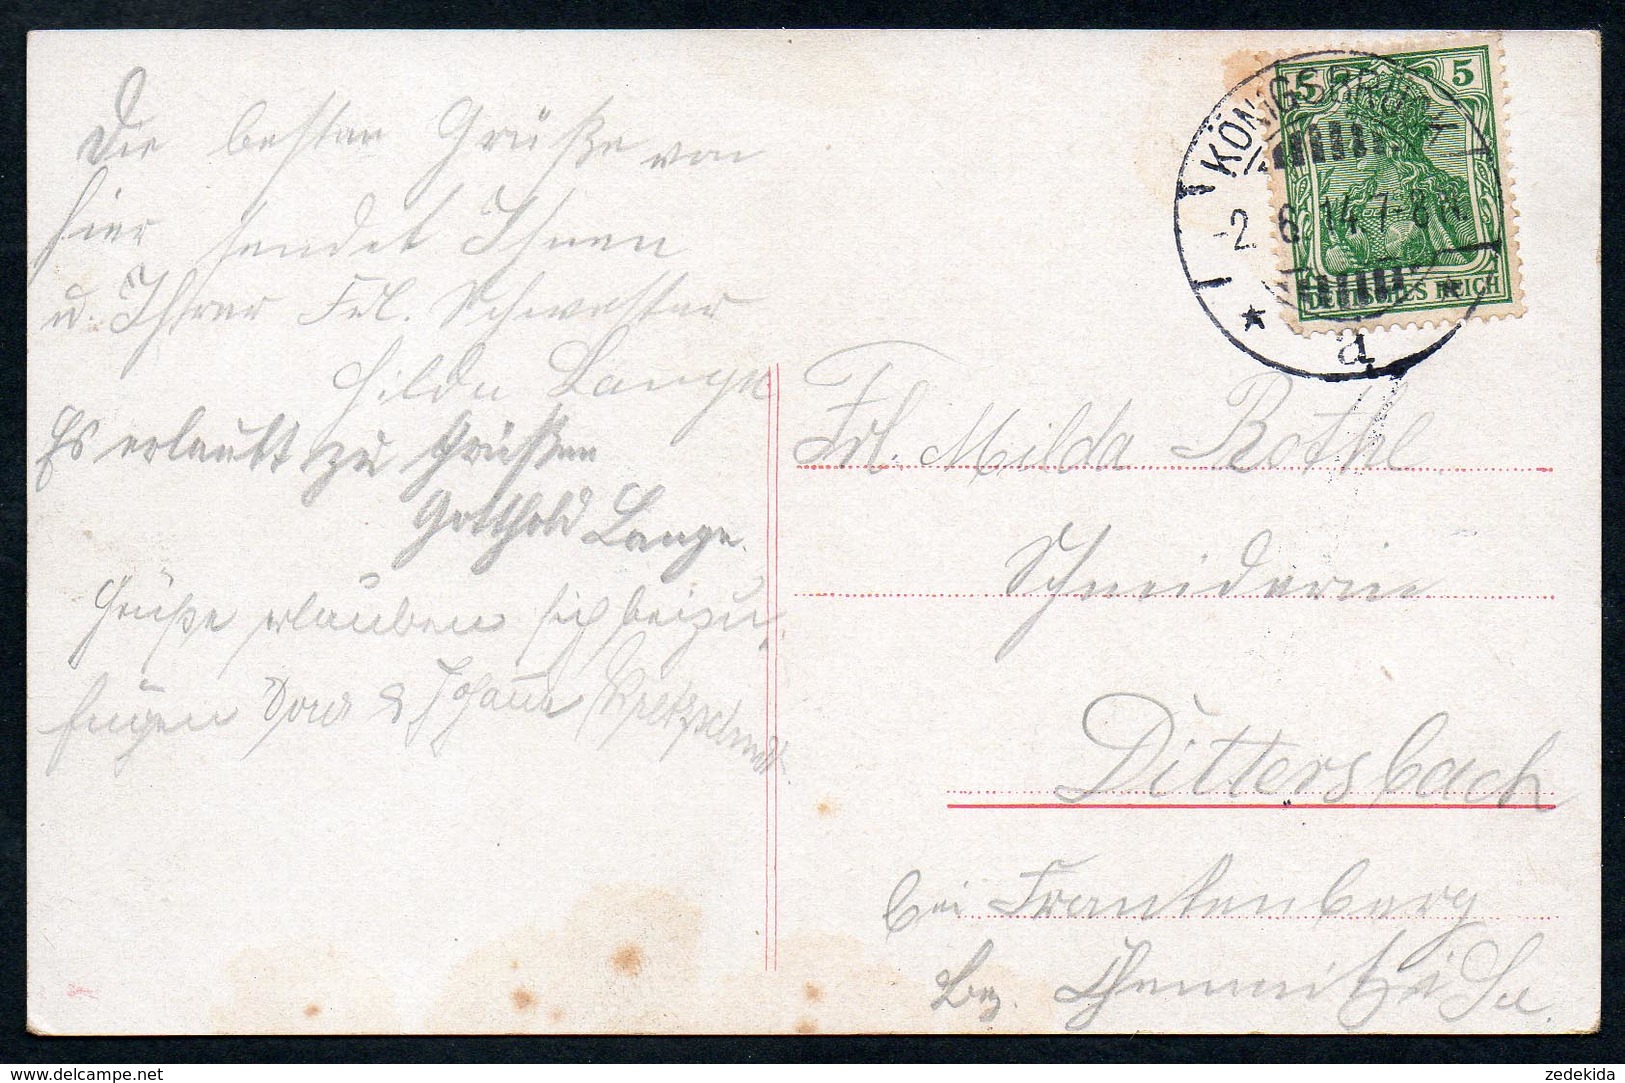 Die besten Grüße von
hier sendet Ihnen
u. Ihrer Frl. Schwester
Hilda Lange
Es erlaubt zu Grüßen
Gotthold Lange.
Grüße erlauben sich beizu-
fügen Dora & Johanne Kretzschmar
KÖNIGSBRÜCK
-2.6.14.7-8N.
* a *
5 5
DEUTSCHES REICH
Frl. Milda Rothe
Schneiderin
Dittersbach
bei Frankenberg
Bez. Chemnitz i Sa.
www.delcampe.net
zedekida